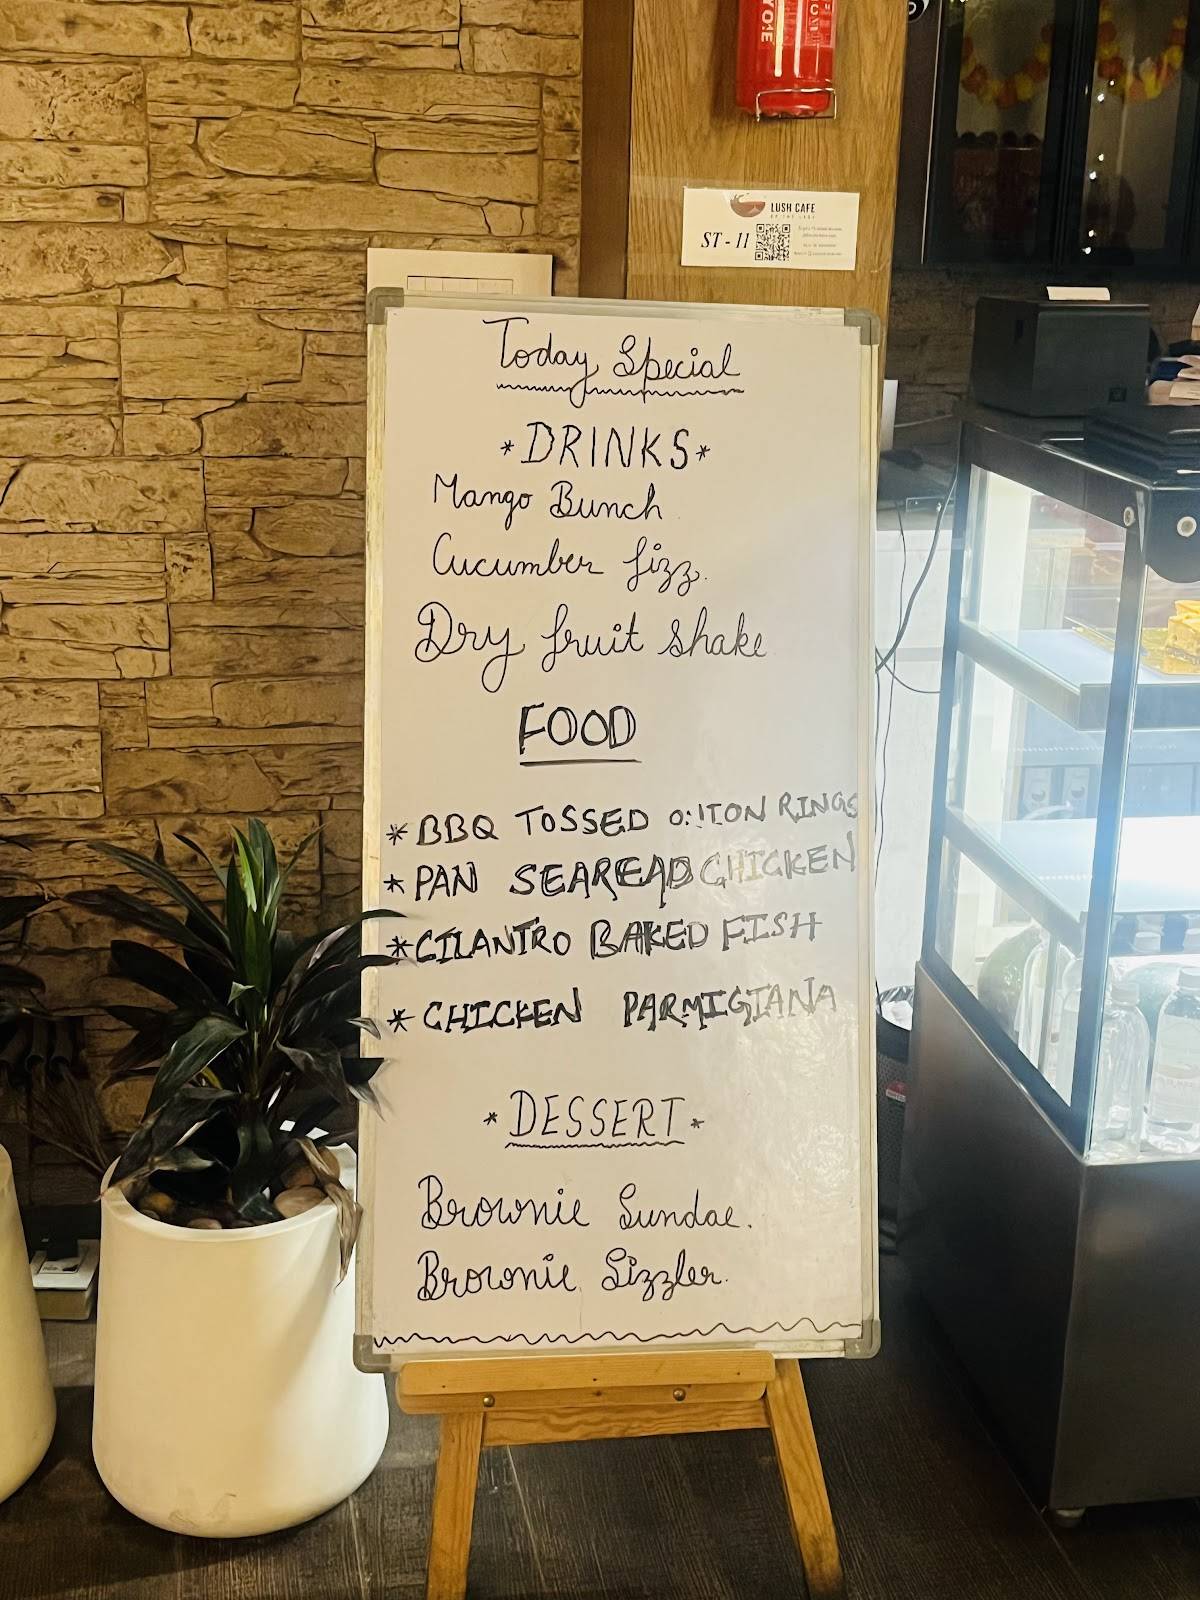 LUSH CAFE
ST - 11
Today Special
*DRINKS*
Mango Bunch
Cucumber fizz.
Dry fruit shake
FOOD
*BBQ TOSSED ONION RINGS
*PAN SEAREAD CHICKEN
*CILANTRO BAKED FISH
*CHICKEN PARMIGIANA
*DESSERT*
Brownie Sundae.
Brownie Sizzler.